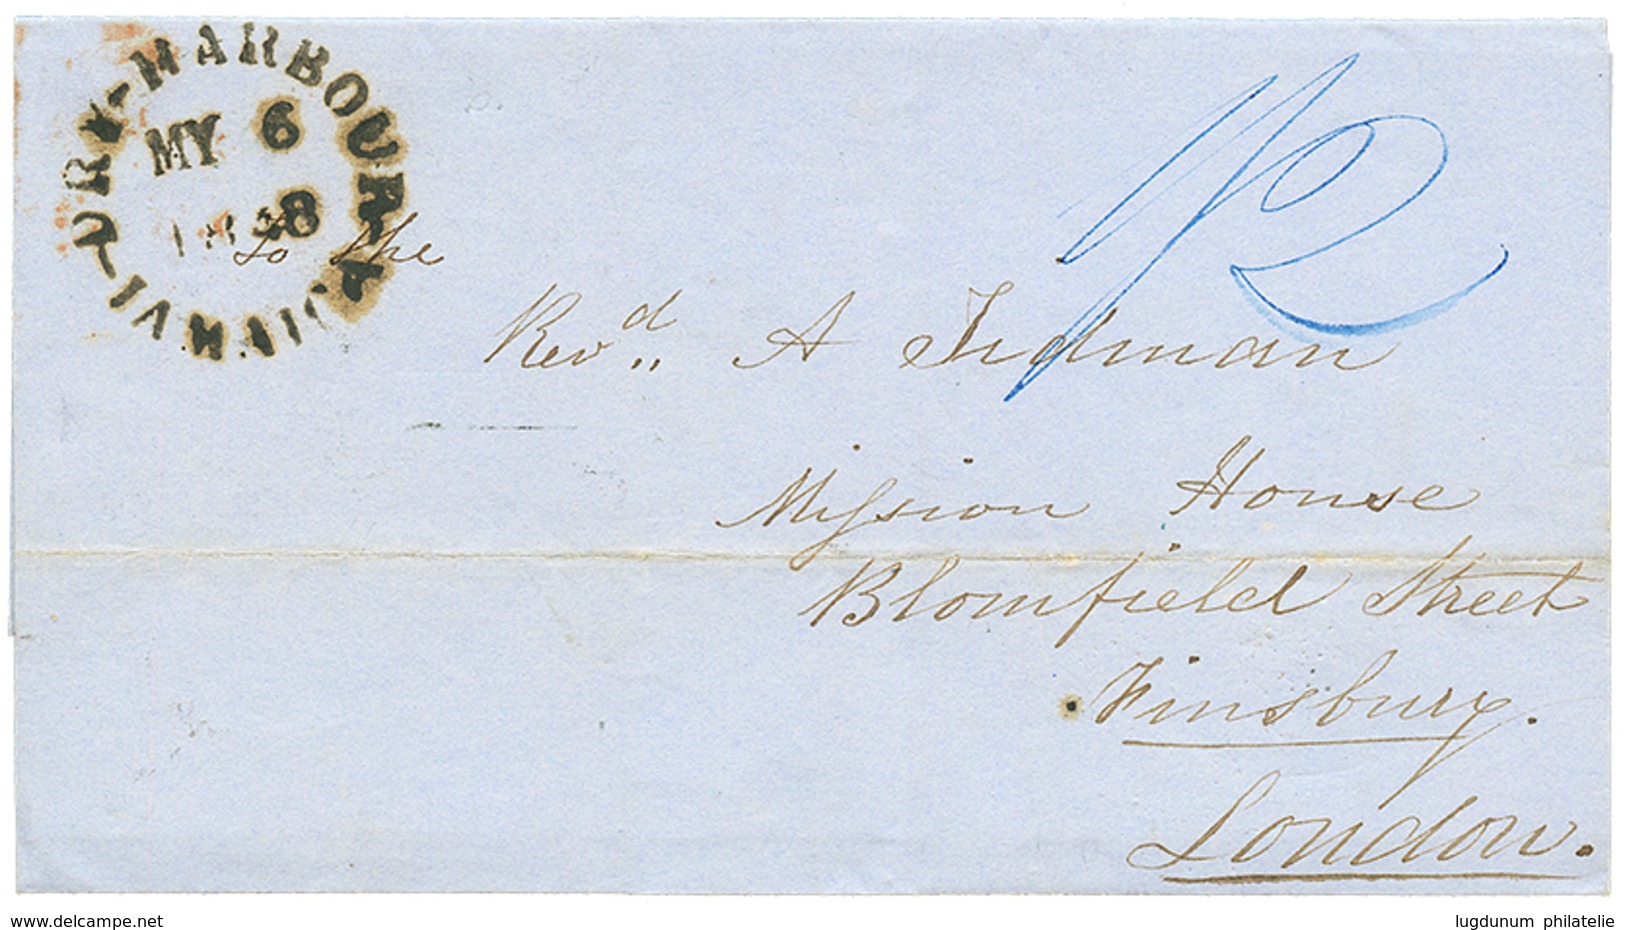 HARBOUR
MY 6
to the
Revd,, A Tidman
1/2
Mission House
Blomfield Street
Finsbury.
London.
www.delcampe.net
lugdunum philatelie